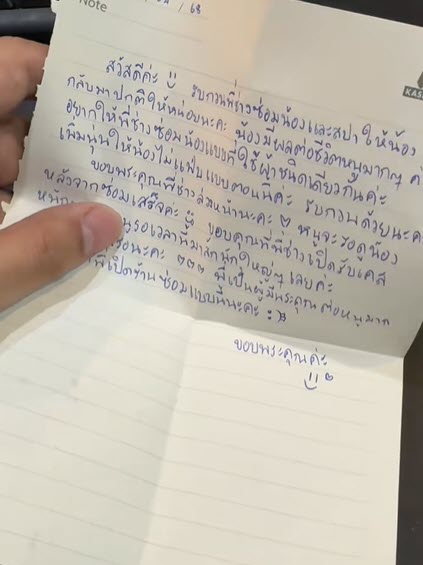 Note
/ 68
KAS
สวัสดีค่ะ รบกวนพี่ช่างซ่อมน้องและสปาให้น้อง
กลับมาปกติให้หน่อยนะคะ น้องมีผลต่อชีวิตหนูมากๆ ค่
อยากให้พี่ช่างซ่อมน้องแบบที่ใช้ผ้าชนิดเดียวกันค่ะ
เพิ่มนุ่นให้น้องไม่แฟบแบบตอนนี้ค่ะ รบกวนด้วยนะคะ
ขอบพระคุณพี่ช่างล่วงหน้านะคะ หนูจะรอดูน้อง
หลังจากซ่อมเสร็จค่ะ ขอบคุณพี่พี่ช่างเปิดรับเคส
รอเวลานี้มาสักพักใหญ่ๆ เลยค่ะ
นะคะ ๓๓๓ พี่เป็นผู้มีพระคุณต่อหนูมาก
พี่เปิดร้านซ่อมแบบนี้นะคะ :B
ขอบพระคุณค่ะ